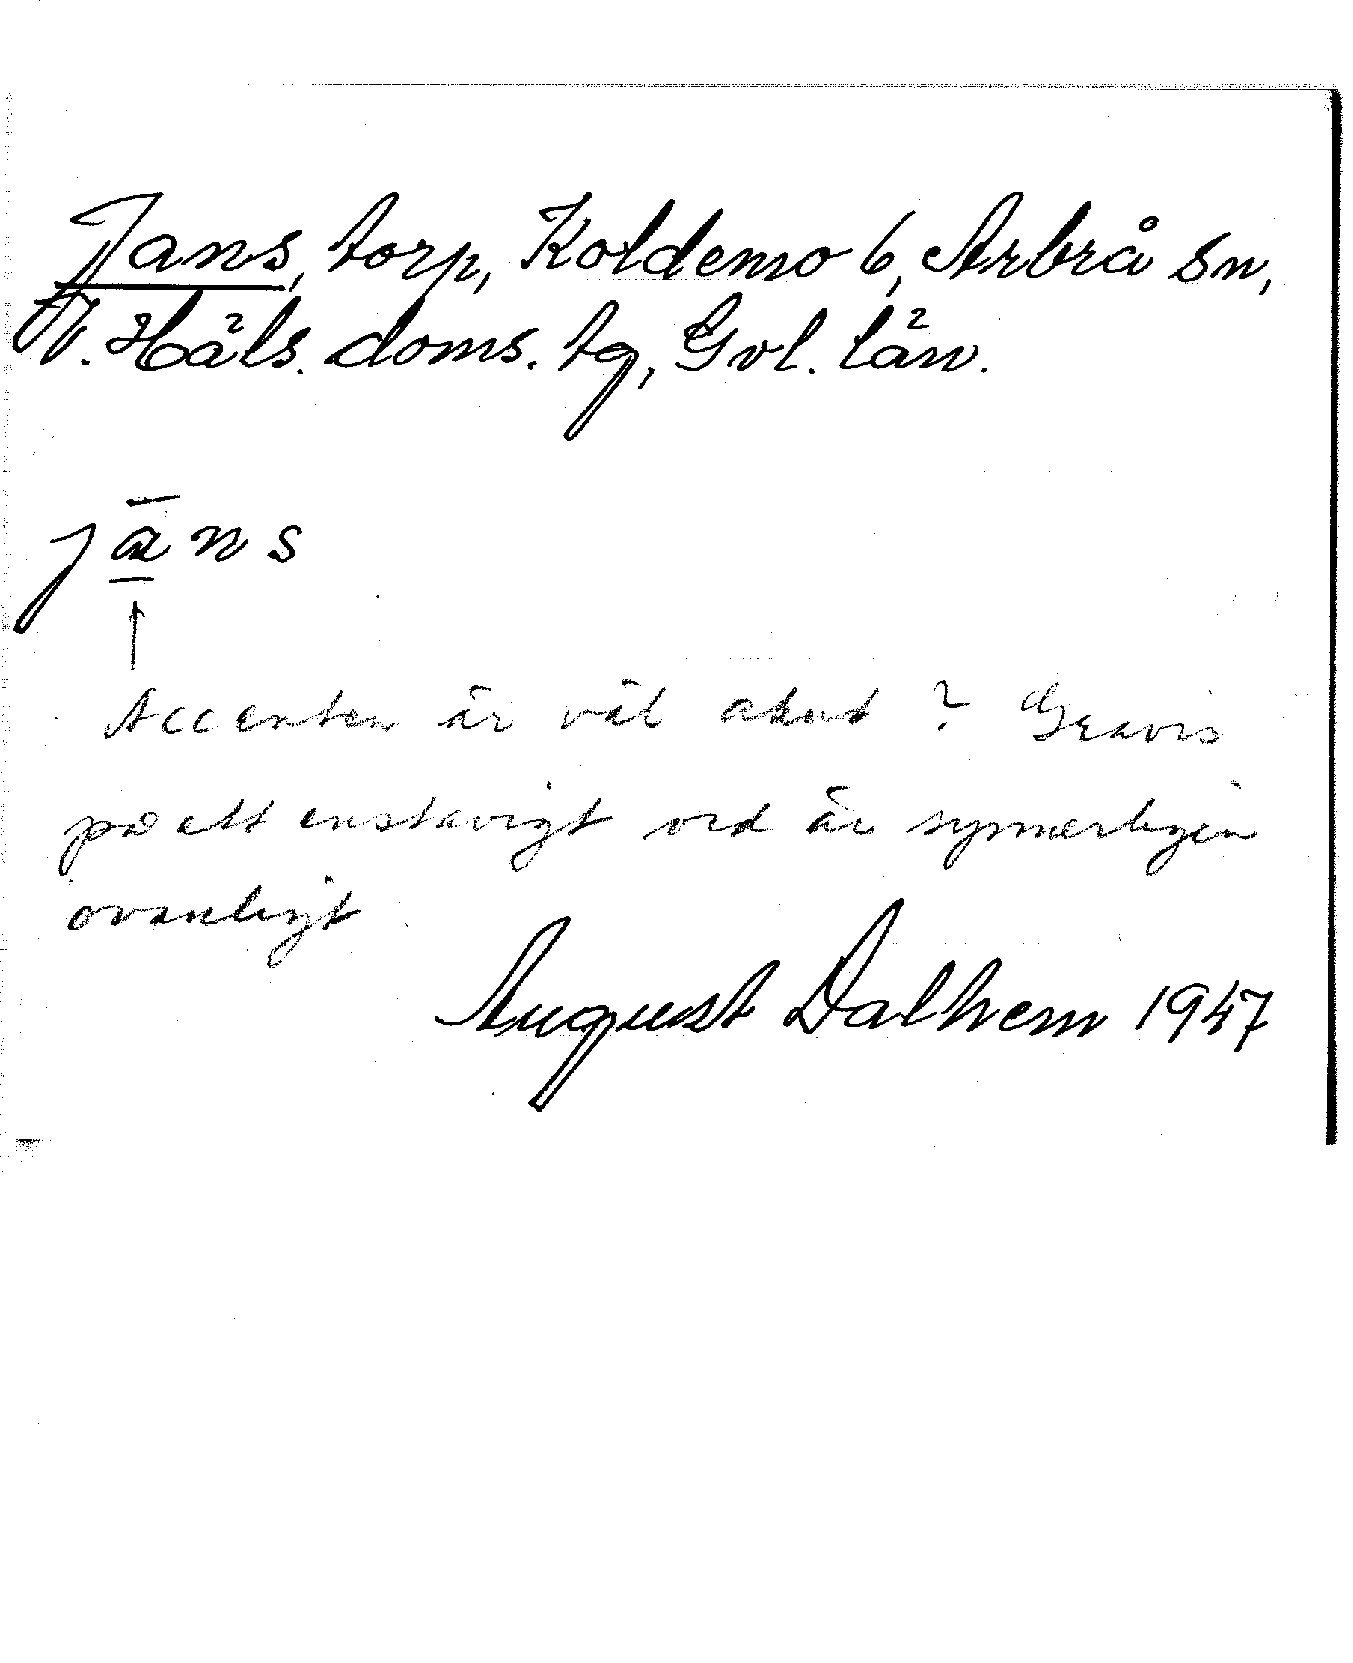 Jans, torp, Koldemo 6, Arbrå sn,
V. Häls. doms. tg, Gvl. län.
jāns
Accenten är väl akut? Gravis
på ett enstavigt ord är synnerligen
ovanligt
August Dalhem 1947